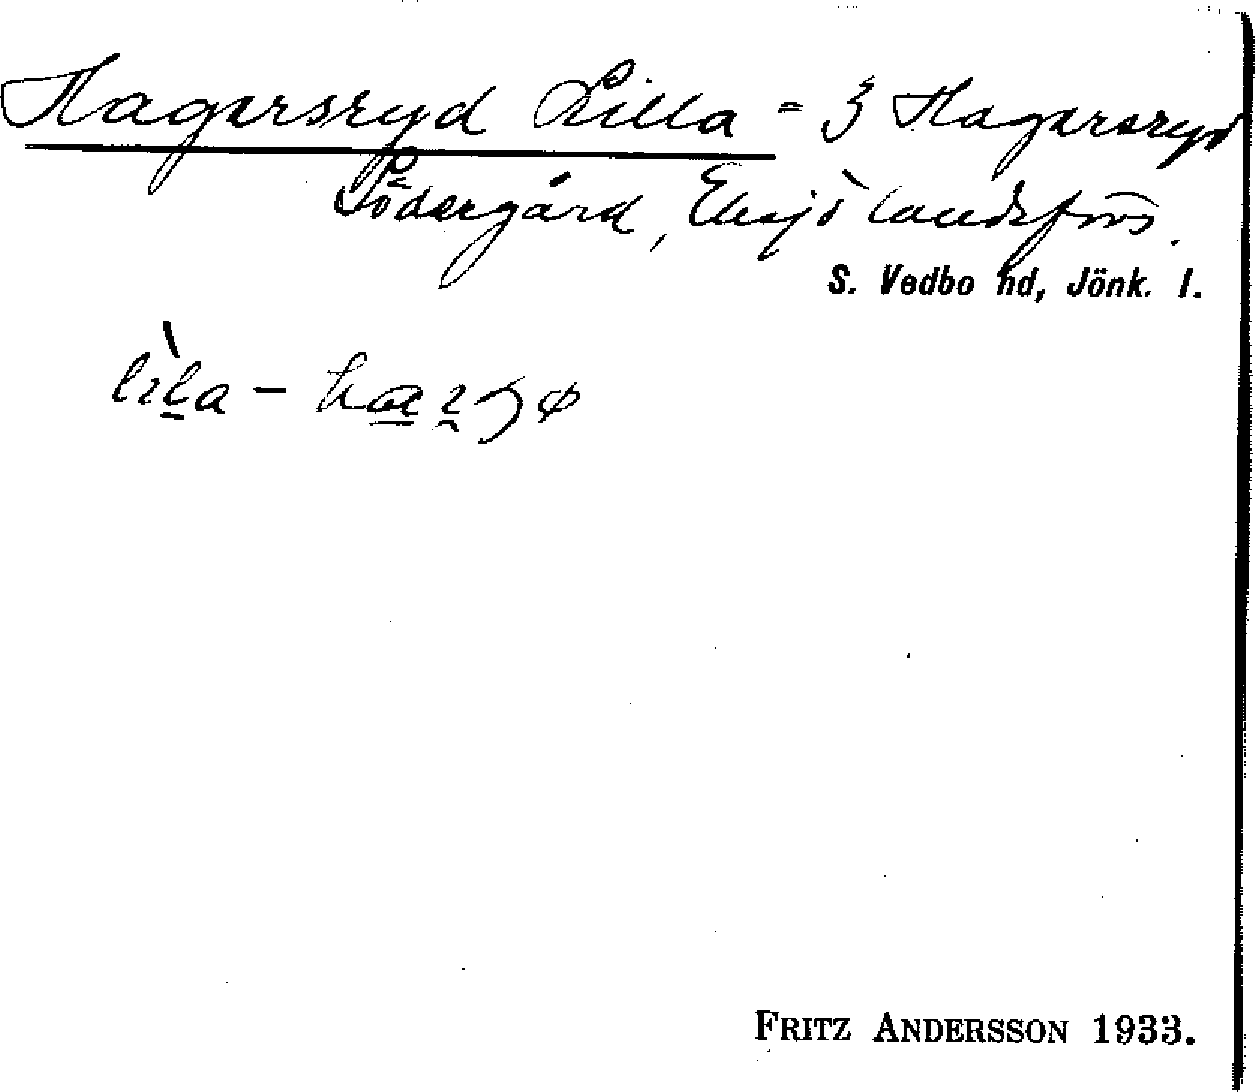 Hagersryd Lilla = 3 Hagersryd
Södergård, Eksjö landsförs.
S. Vedbo hd, Jönk. l.
lìla -
FRITZ ANDERSSON 1933.